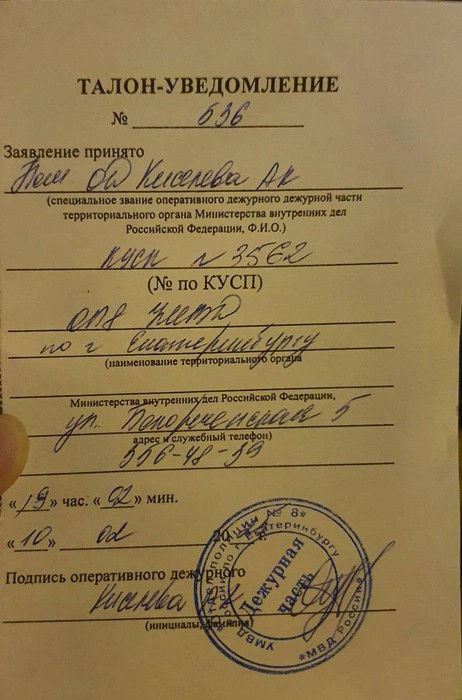 ТАЛОН-УВЕДОМЛЕНИЕ
№ 536
Заявление принято
Пом ОД Киселева АК
(специальное звание оперативного дежурного дежурной части
территориального органа Министерства внутренних дел
Российской Федерации, Ф.И.О.)
КУСП № 3562
(№ по КУСП)
по г Екатеринбургу
(наименование территориального органа
Министерства внутренних дел Российской Федерации,
ул. 5
адрес и служебный телефон)
356-48-59
« 19 » час. « 02 » мин.
« 10 » 02 20
Подпись оперативного дежурного
Киселева
(инициалы, фамилия)
Отдел полиции № 8
Екатеринбургу
УМВД России по г.
Дежурная
часть
*МВД России*